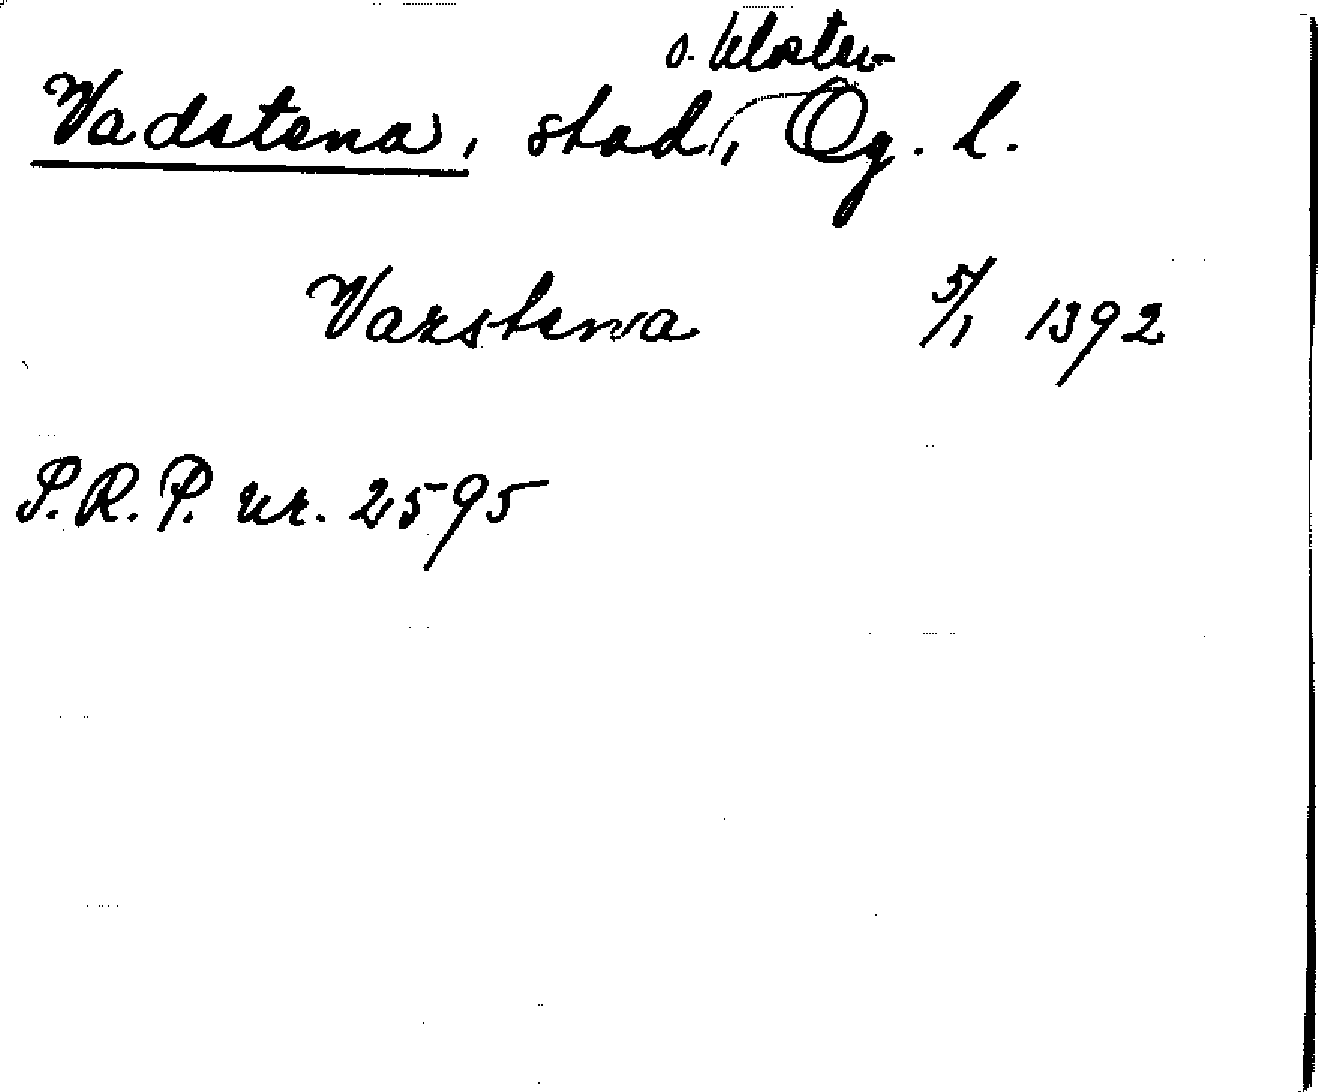 o. kloster
Vadstena, stad, Ög. l.
Vazstena 5/1 1392
S.R.P. nr. 2595